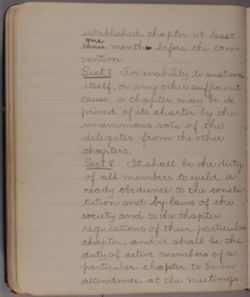 established chapter at least
one
three months before the con-
vention.
Sect 7 For inability to sustain
itself, or any other sufficient
cause, a chapter may be de
prived of its charter by the
unanimous vote of the
delegates from the other
chapters.
Sect 8 It shall be the duty
of all members to yield a
ready obedience to the consti
tution and by-laws of the
society and to the chapter
regulations of their particular
chapter, and it shall be the
duty of active members of a
particular chapter to be in
attendance at the meetings